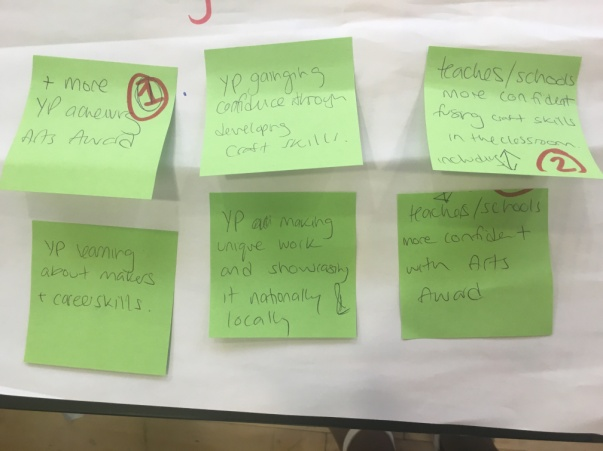 + more
YP acheiving
Arts Award
1
YP gainging
confidence through
developing
craft skills.
teaches/schools
more confident
craft skills
in the classroom.
2
YP learning
about makers
+ career skills.
YP making
unique work
and showcasing
it nationally &
locally
teaches/schools
more confident
with Arts
Award